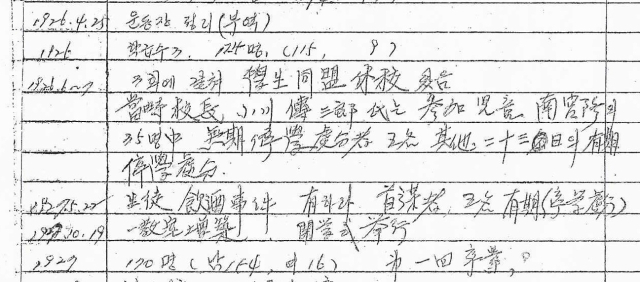 1926.4.25 운동장 정리(부역)
1926 학급수 3. 125명, (115, 9)
1926.6~7 3회에 걸쳐 學生同盟休校
當時校長 小川傳三郎 氏는 參加兒童 南宮 의
35명中 無期停學處分者 五名 其他 二十三 日의 有期
停學處分.
1927.5.22 生徒 飮酒事件 有 하다 首謀者 五名 有期(停學處分)
1927.10.19 一敎室增築 開学式 挙行
1927 170명 (남154, 여16) 第一回卒業